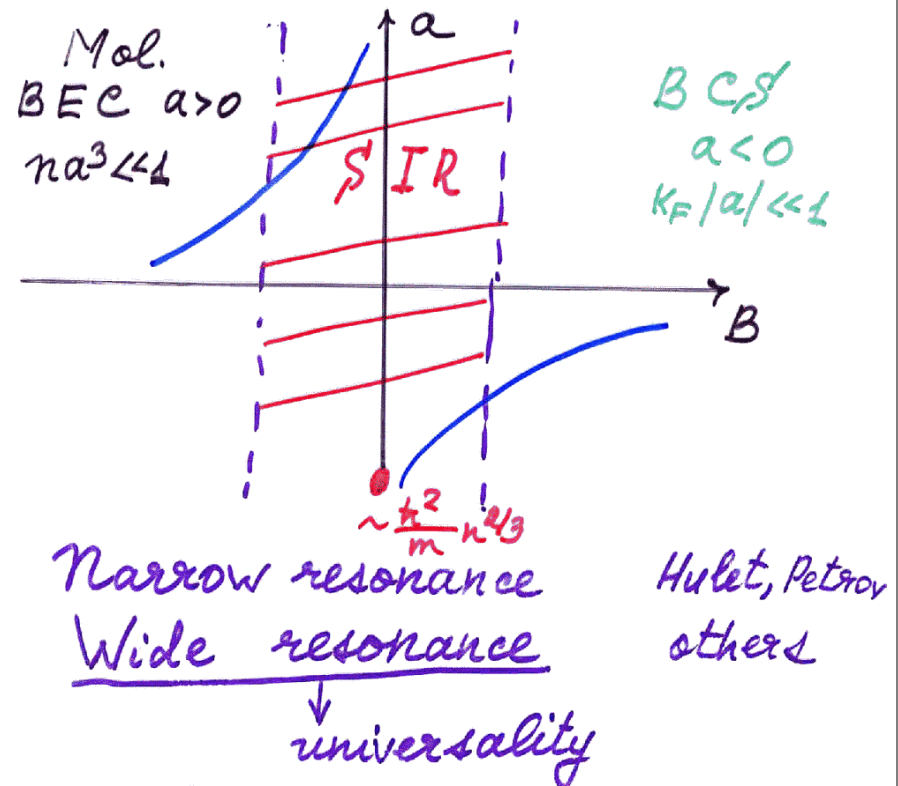 a
Mol.
BEC a>0
na³<<1
SIR
BCS
a<0
K_F|a|<<1
B
~ ħ²/m n^2/3
Narrow resonance
Hulet, Petrov
Wide resonance
others
universality